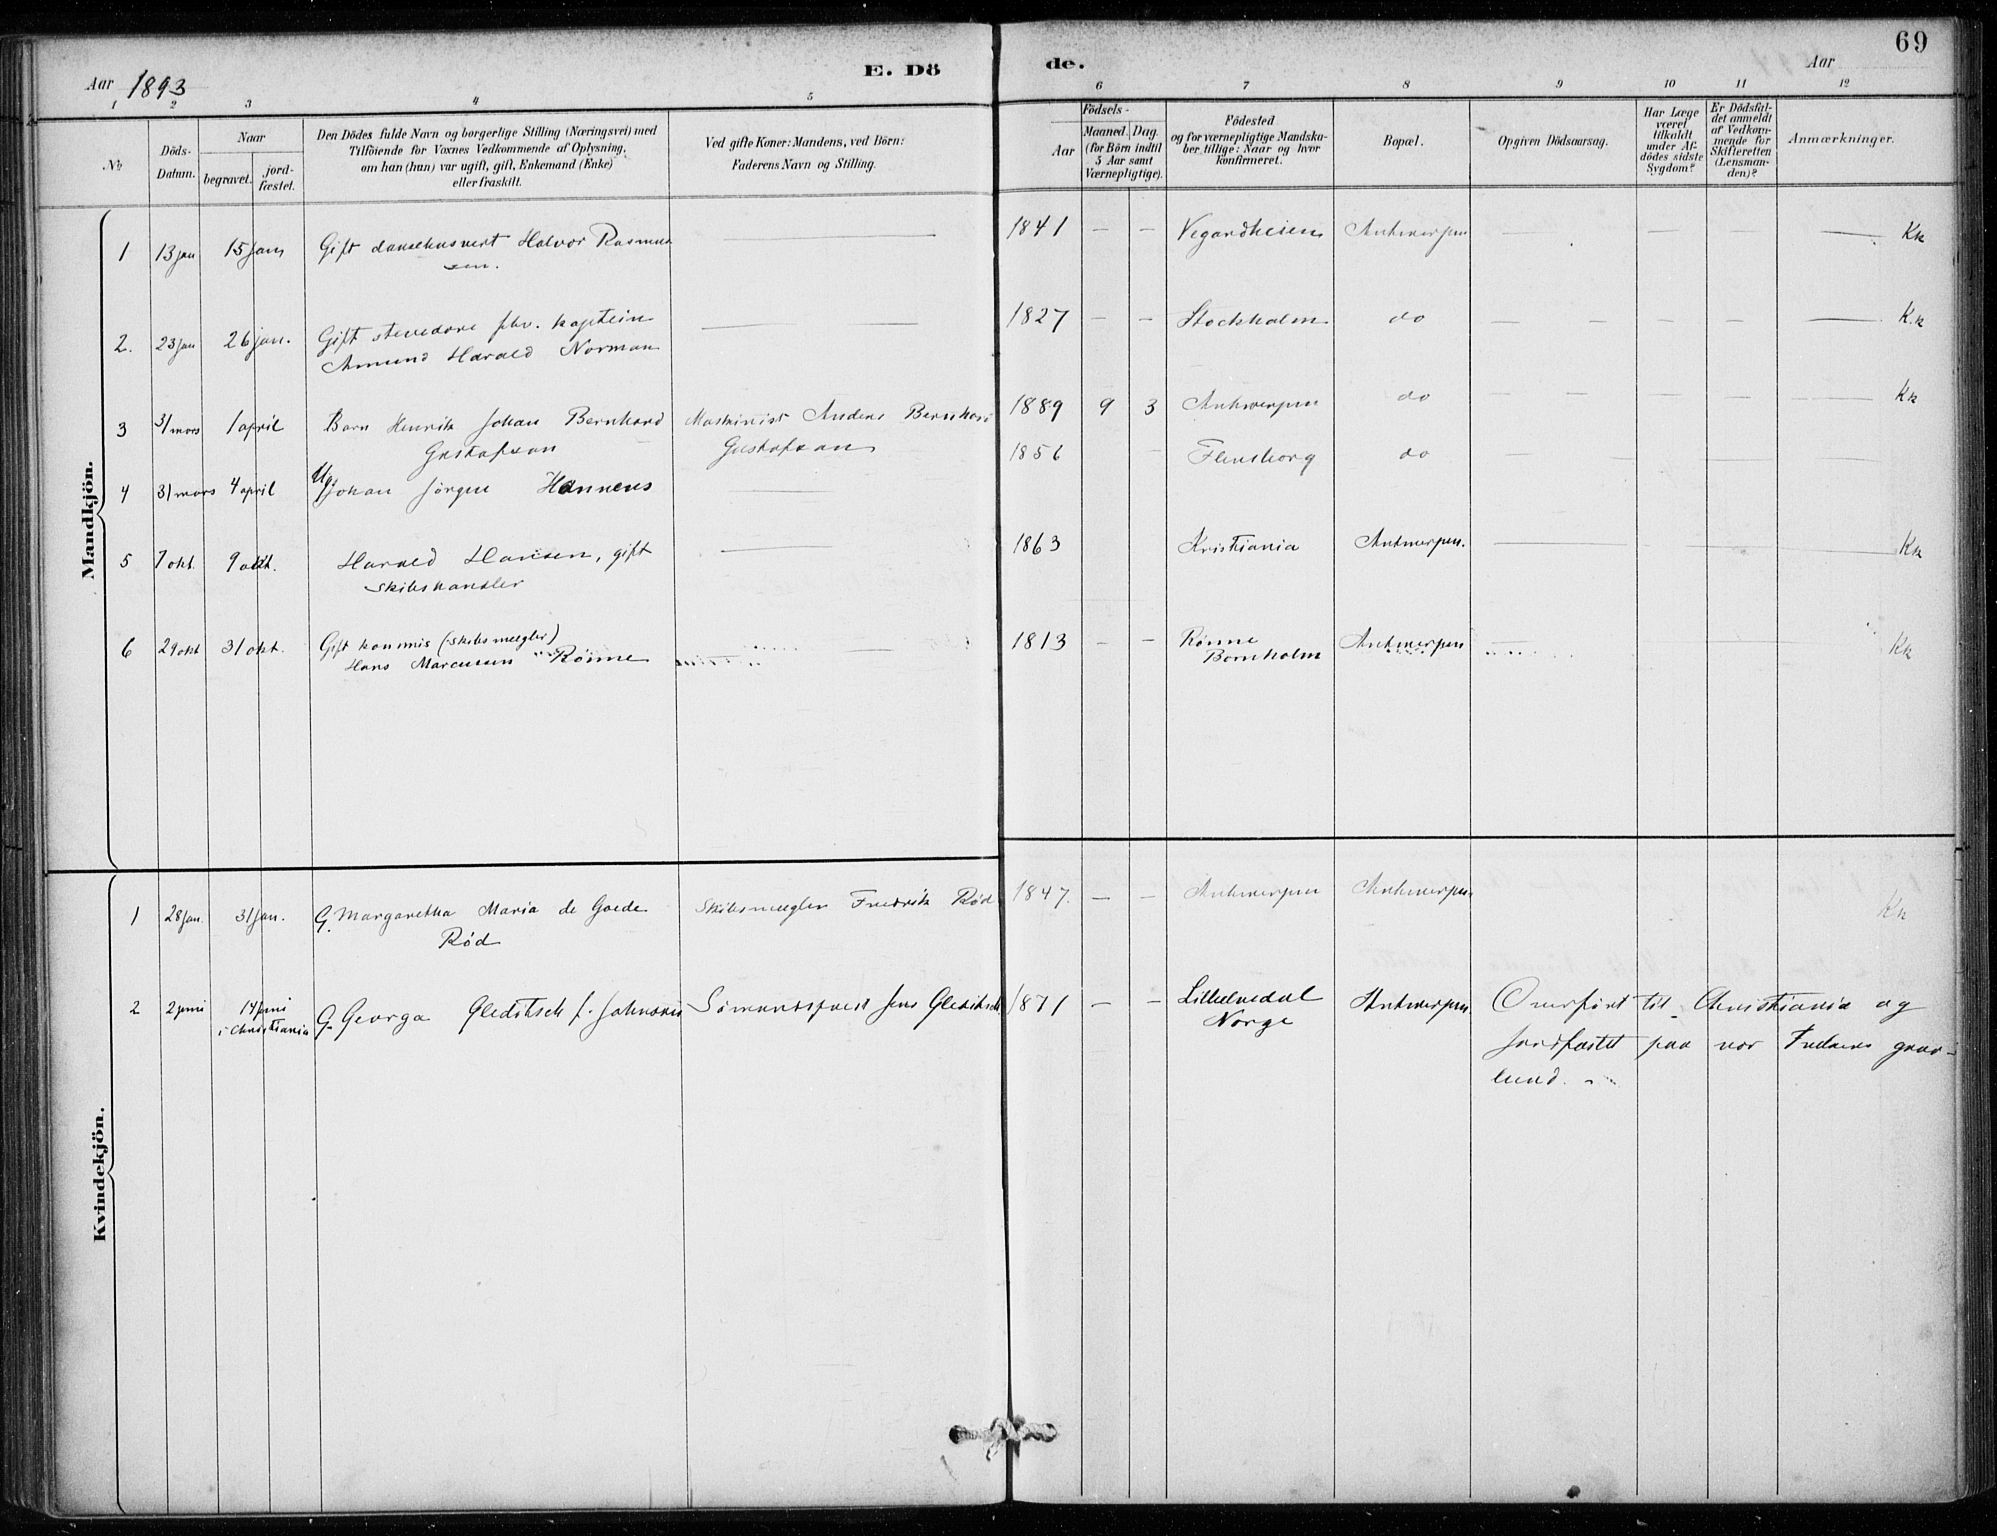 69
Aar 1893
E. Dö
de.
Aar
1 2 3 4 5 6 7 8 9 10 11 12
№
Döds-
Datum.
Naar
begravet.
jord-
fæstet.
Den Dödes fulde Navn og borgerlige Stilling (Næringsvei) med
Tilföiende for Voxnes Vedkommende af Oplysning,
om han (hun) var ugift, gift, Enkemand (Enke)
eller fraskilt.
Ved gifte Koner: Mandens, ved Börn:
Faderens Navn og Stilling.
Födsels-
Aar
Maaned. Dag.
(for Börn indtil
5 Aar samt
Værnepligtige).
Födested
og for værnepligtige Mandska-
ber tillige: Naar og hvor
konfirmeret.
Bopæl.
Opgiven Dödsaarsag.
Har Læge
været
tilkaldt
under Af-
dödes sidste
Sygdom?
Er Dödsfal-
det anmeldt
af Vedkom-
mende for
Skifteretten
(Lensman-
den)?
Anmærkninger.
Mandkjön.
1 13 jan 15 jan Gift dansehusvert Halvor Rasmus
sen. — 1841 — — Vegardheien Antwerpen — — — Kk
2. 23 jan 26 jan. Gift stevedore fhv. kaptein
Amund Harald Norman — 1827 — — Stockholm do — — — — K.k
3 31 mars 1 april Barn Henrik Johan Bernhard
Gustafson Maskinist Anders Bernhard
Gustafson 1889 9 3 Antwerpen do — — — — Kk
4 31 mars 4 april Ug. Johan Jörgen Hannens — 1856 Flensborg do
5 7 okt. 9 okt. Harald Hansen, gift
skibshandler — 1863 Kristiania Antwerpen. — Kk
6 29 okt 31 okt. Gift kommis (skibsmegler)
Hans Marcussen Rönne — 1813 — — Rönne
Bornholm Antwerpen Kk
Kvindekjön.
1 28 jan. 31 jan. G. Margaretha Maria de Goede
Rød Skibsmegler Fredrik Rød 1847. — — Antwerpen Antwerpen. Kk
2 2 juni 14 juni
i Christiania G. Georga Gleditsch f. Johnsen Sömandsprest Jens Gleditsch 1871 — — Lilleelvedal
Norge Antwerpen Overført til Christiania og
jordfæstet paa vor Frelsers grav-
lund.